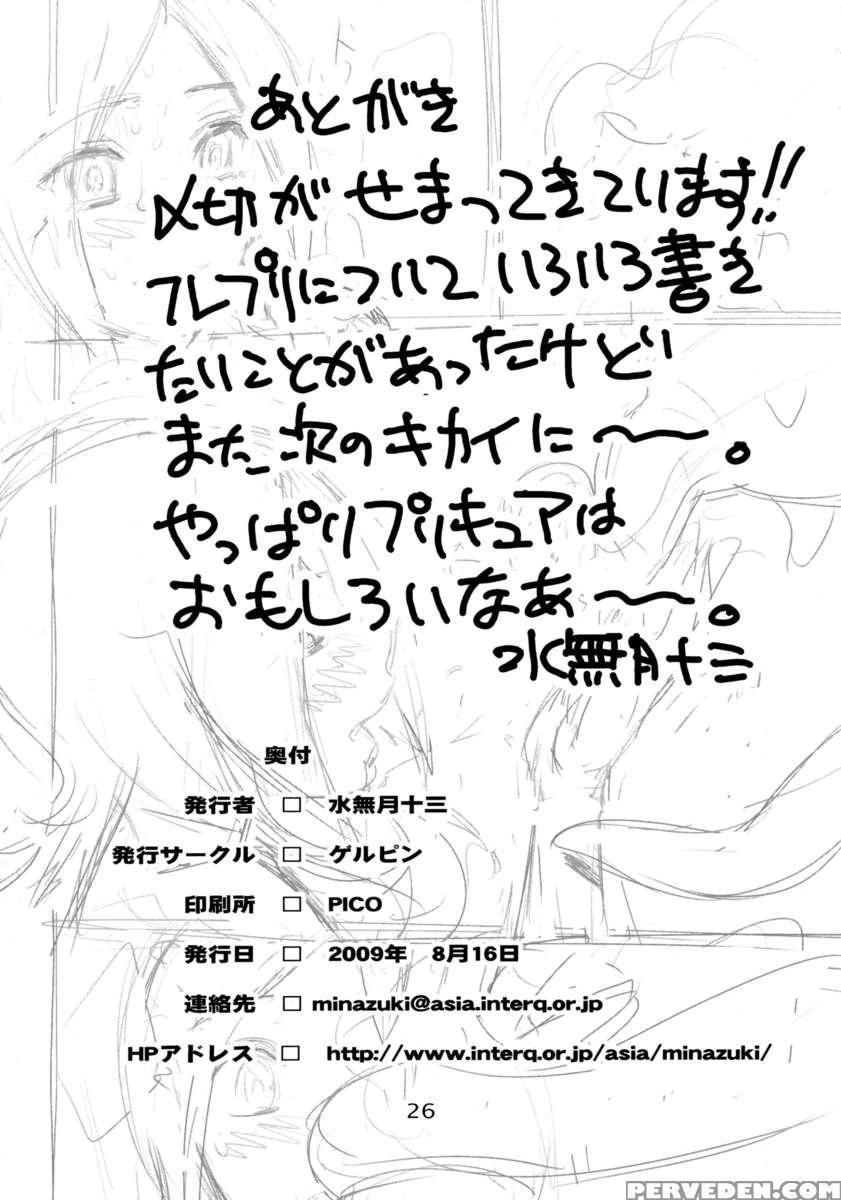 あとがき
〆切がせまってきています!!
フレプリについていろいろ書き
たいことがあったけど
また次のキカイに〜〜。
やっぱりプリキュアは
おもしろいなあ〜〜。
水無月十三
奥付
発行者 □ 水無月十三
発行サークル □ ゲルピン
印刷所 □ PICO
発行日 □ 2009年 8月16日
連絡先 □ minazuki@asia.interq.or.jp
HPアドレス □ http://www.interq.or.jp/asia/minazuki/
26
PERVEDEN.COM